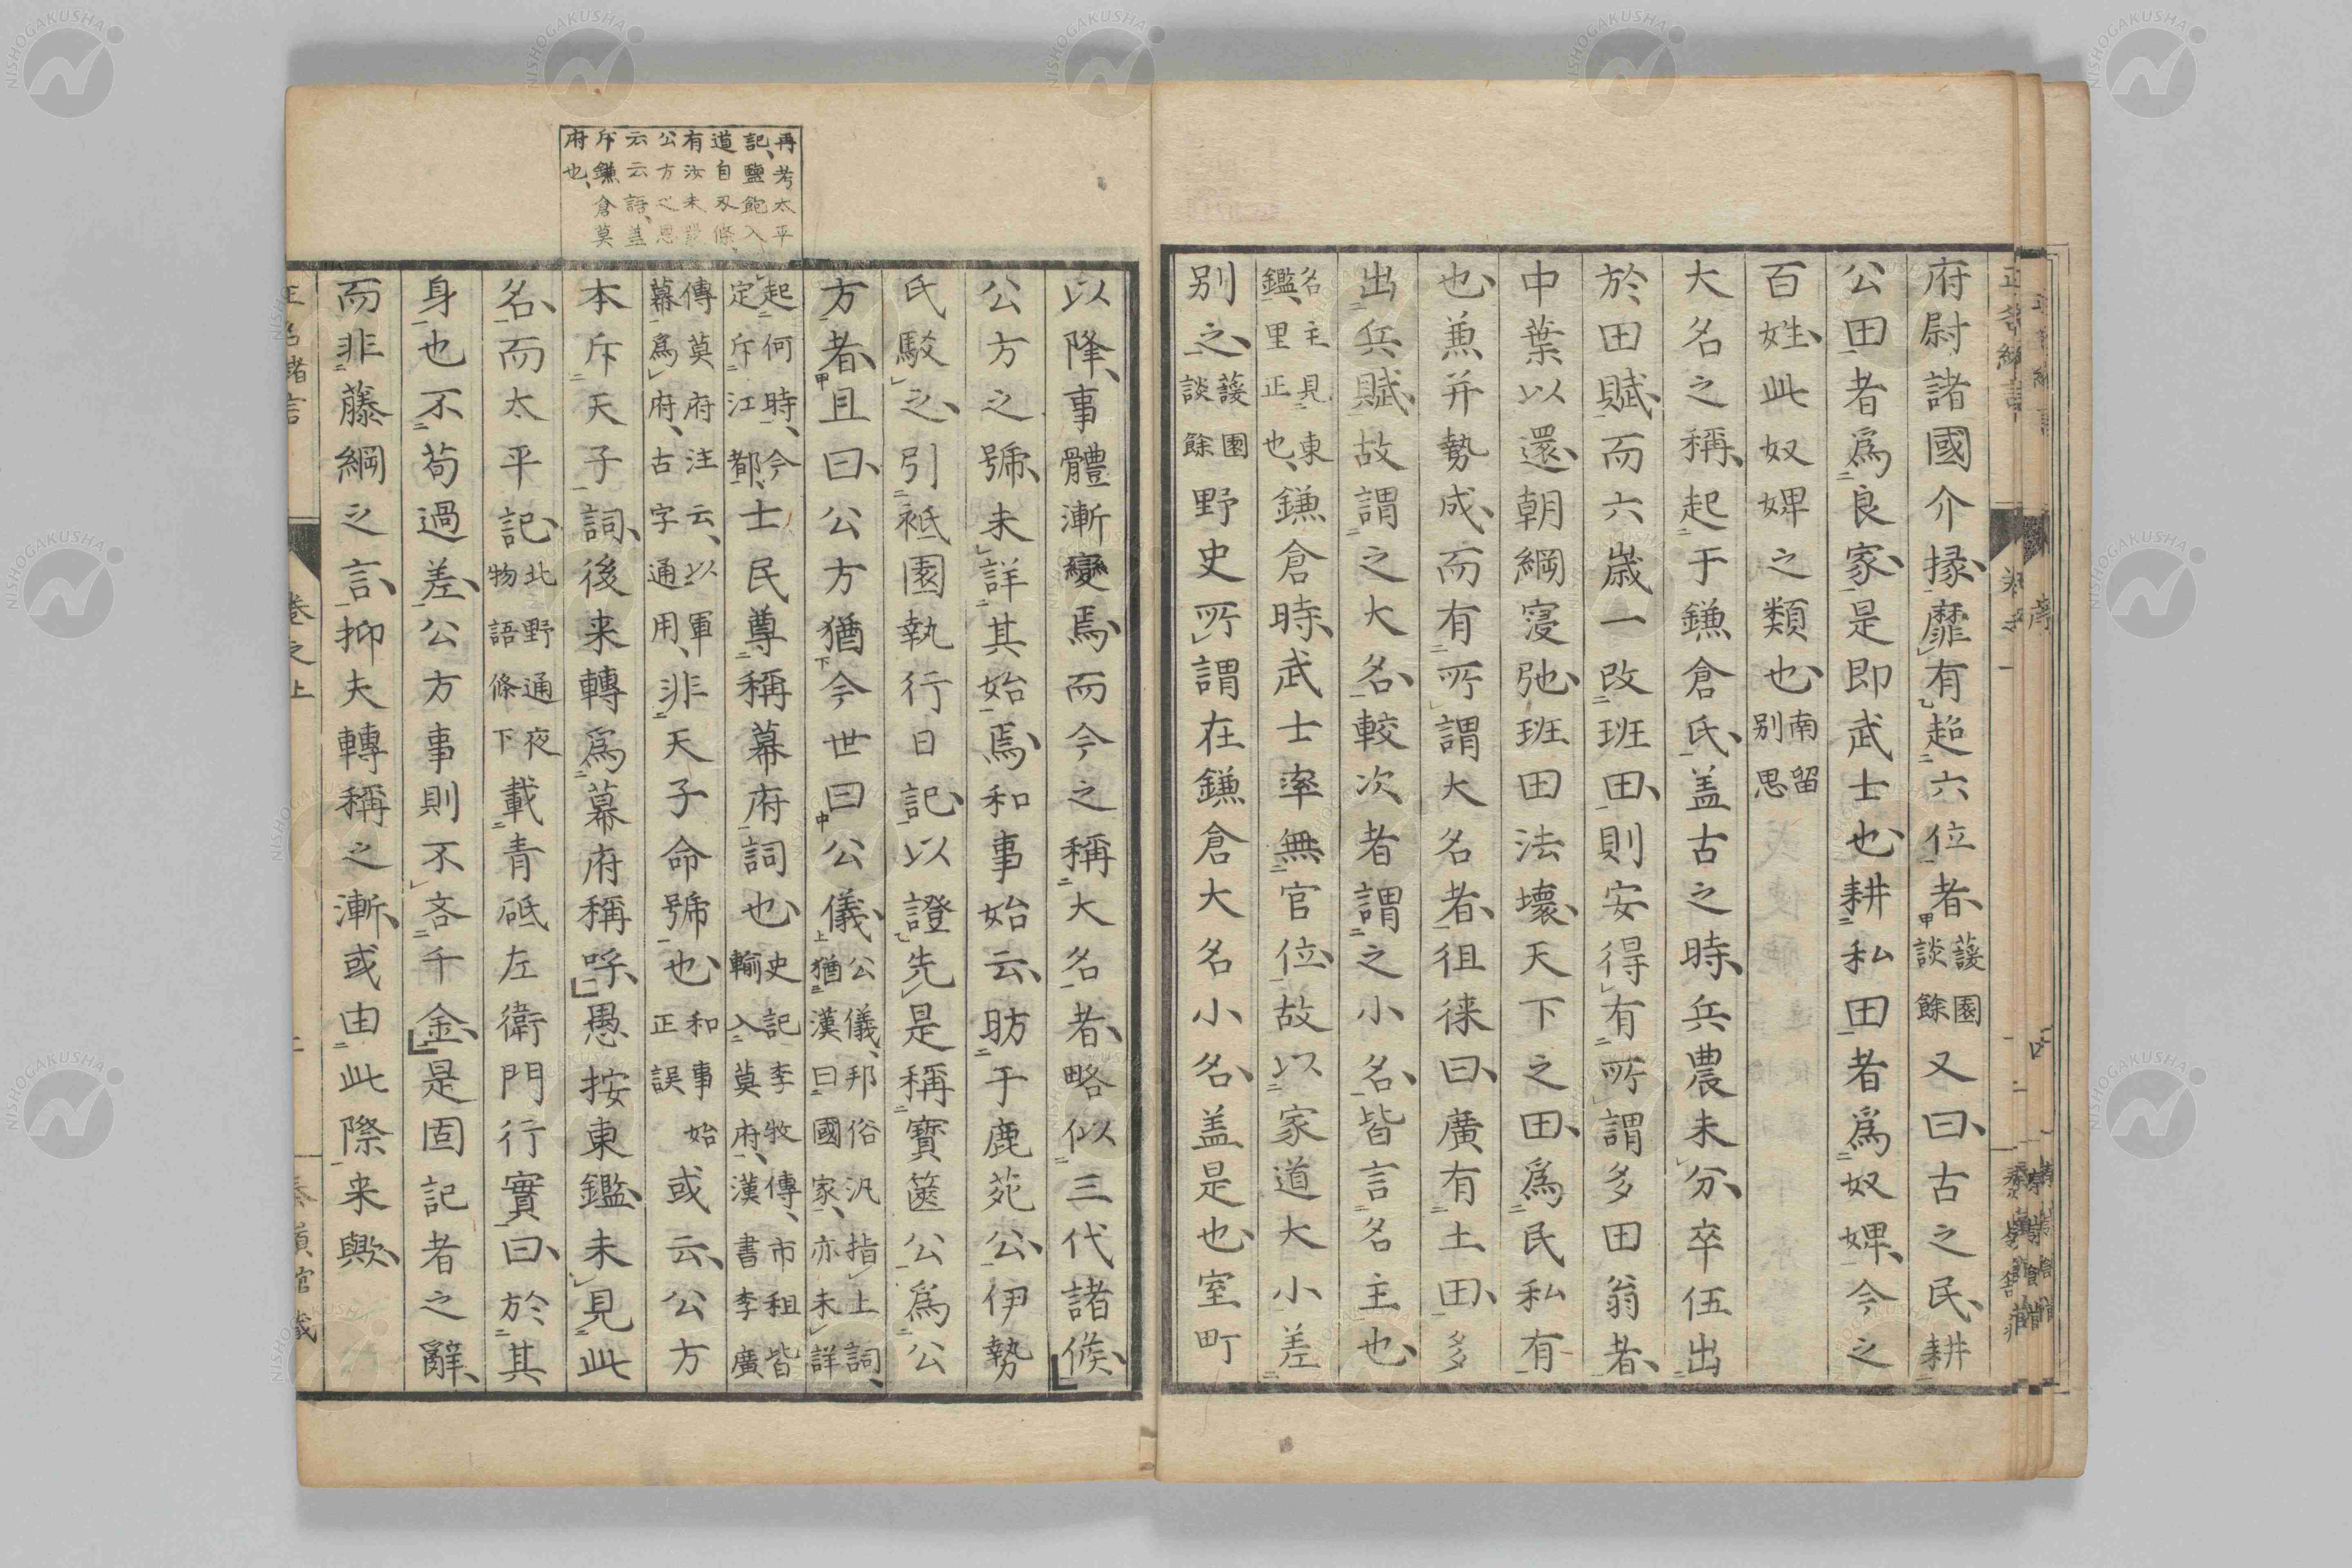 府尉諸國介掾、靡有超六位者、蘐園談餘又曰、古之民、耕
公田者爲良家、是即武士也、耕私田者爲奴婢、今之
百姓、此奴婢之類也、南留別思
大名之稱、起于鎌倉氏、盖古之時、兵農未分、卒伍出
於田賦、而六歲一改班田、則安得有所謂多田翁者、
中葉以還、朝綱寖弛、班田法壞、天下之田、爲民私有
也、兼并勢成、而有所謂大名者、徂徠曰、廣有土田、多
出兵賦、故謂之大名、較次者謂之小名、皆言名主也、
名主見東鑑、里正也、鎌倉時、武士率無官位、故以家道大小差
別之、蘐園談餘野史所謂在鎌倉大名小名、盖是也、室町
以降、事體漸變焉、而今之稱大名者、略似三代諸侯、
公方之號、未詳其始焉、和事始云、昉于鹿苑公、伊勢
氏駁之、引祇園執行日記、以證先是稱寶篋公爲公
方者、且曰、公方猶今世曰公儀、公儀、邦俗汎指上詞、猶漢曰國家、亦未詳
起何時、今定斥江都、士民尊稱幕府詞也、史記李牧傳、市租皆輸入莫府、漢書李廣
傳莫府注云、以軍幕爲府、古字通用、非天子命號也、和事始正誤或云、公方
本斥天子詞、後来轉爲幕府稱呼、愚按東鑑、未見此
名、而太平記、北野通夜物語條下載青砥左衛門行實曰、於其
身也不苟過差、公方事則不吝千金、是固記者之辭、
而非藤綱之言、抑夫轉稱之漸、或由此際来歟、
再考太平
記、鹽飽入
道自刃條、
有汝未
公方之恩
云云語、盖
斥鎌倉莫
府也、
卷之上